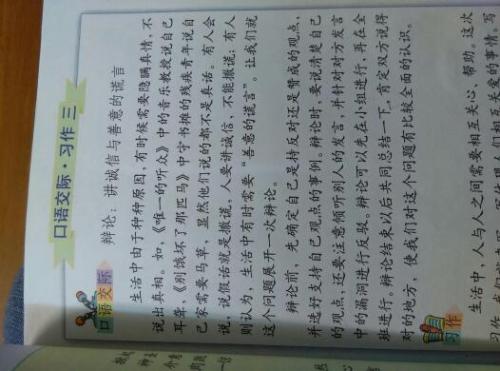 口语交际·习作 三
口语交际
辩论：讲诚信与善意的谎言
生活中由于种种原因，有时候需要隐瞒真情，不
说出真相。如，《唯一的听众》中的音乐教授说自己
耳聋，《别饿坏了那匹马》中守书摊的残疾青年说自
己家需要马草，显然他们说的都不是真话。有人会
说，说假话就是撒谎，人要讲诚信，不能撒谎；有人
则认为，生活中有时需要“善意的谎言”。让我们就
这个问题展开一次辩论。
辩论前，先确定自己是持反对还是赞成的观点，
并选好支持自己观点的事例。辩论时，要说清楚自己
的观点，还要注意倾听别人的发言，并针对对方发言
中的漏洞进行反驳。辩论可以先在小组进行，再在全
班进行。辩论结束以后共同总结一下，肯定双方说得
对的地方，使我们对这个问题有比较全面的认识。
习作
生活中，人与人之间需要相互关心、帮助。这次